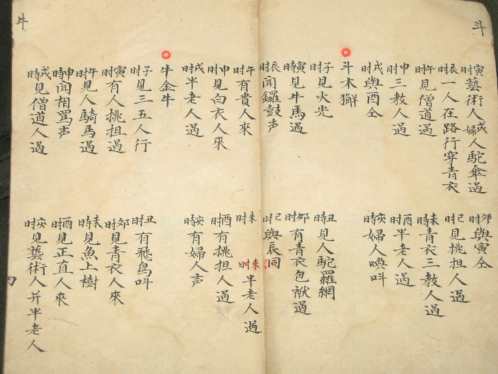 斗
寅时藝術人或婦人駝傘過
卯时與寅仝
辰时一人在路行穿青衣
巳时見挑担人過
午时見僧道過
未时青衣三教人過
申时三教人過
酉时半老人過
戌时與酉仝
亥时婦人喚叫
斗木獬
子时見火光
丑时見人駝羅網
寅时見牛馬過
卯时有青衣包袱過
辰时聞鑼鼓声
巳时與辰同
午时有貴人來
未时半老人過
申时見白衣人來
酉时有挑担人過
戌时半老人過
亥时有婦人声
牛金牛
子时見三五人行
丑时有飛鳥叫
寅时有人挑担過
卯时見青衣人來
午时見人騎馬過
未时見魚上樹
申時聞相罵声
酉时見正直人來
戌時見僧道人過
亥时見藝術人并半老人
牛